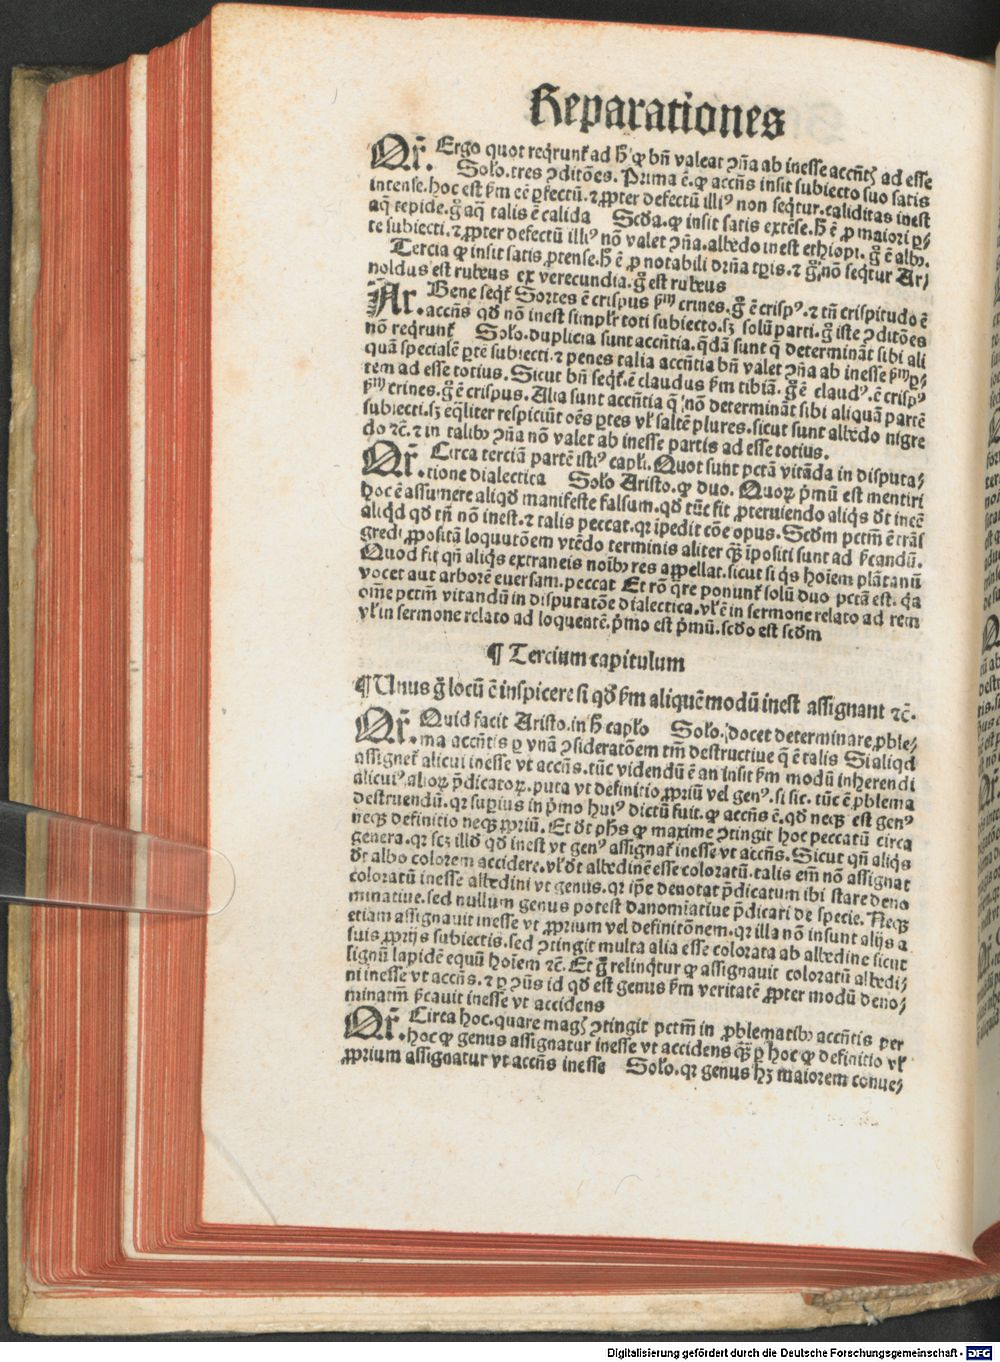 Reparationes
Qr̄. Ergo quot reqrunt᷑ ad h̄ ꝙ bn̄ valeat ꝯn̄a ab inesse accn̄tꝭ ad esse
Solo. tres ꝯditōes. Prima ē. ꝙ accn̄s insit subiecto suo satis
intense. hoc est ẜm eē ꝑfectū. ⁊ ꝓpter defectū illiꝰ non seqtur. caliditas inest
aq̄ tepide. gͦ aq̄ talis ē calida Scd̄a. ꝙ insit satis extēse. h̄ ē ꝓ maiori ꝑ⸗
te subiecti. ⁊ ꝓpter defectū illiꝰ nō valet ꝯn̄a. albedo inest ethiopi. gͦ ē albꝰ.
Tercia ꝙ insit satis ꝓtense. h̄ ē ꝓ notabili dr̄na tꝑis. ⁊ gͦ nō seqtur Ar⸗
noldus est rubeus ex verecundia. gͦ est rubeus
Ar̄. Bene seqt᷑ Sortes ē crispus ẜm crines. gͦ ē crispꝰ. ⁊ tn̄ crispitudo ē
accn̄s qd̄ nō inest simplr̄ toti subiecto. sꝫ solū parti. gͦ iste ꝯditōes
nō reqrunt᷑ Solo. duplicia sunt accn̄tia. qdā sunt q̄ determināt sibi ali
quā specialē ꝑtē subiecti. ⁊ penes talia accn̄tia bn̄ valet ꝯn̄a ab inesse ẜm ꝑ⸗
tem ad esse totius. Sicut bn̄ seqt᷑. ē claudus ẜm tibiā. gͦ ē claudꝰ. ē crispꝰ
ẜm crines. gͦ ē crispus. Alia sunt accn̄tia q̄ nō determināt sibi aliquā partē
subiecti. sꝫ eq̄liter respiciūt oēs ꝑtes vl̓ saltē plures. sicut sunt albedo nigre
do ⁊c̄. ⁊ in talibꝰ ꝯn̄a nō valet ab inesse partis ad esse totius.
Qr̄. Circa terciā partē istiꝰ capl̓i. Quot sunt pctā vitāda in disputa⸗
tione dialectica Solo Aristo. ꝙ duo. Quoꝝ pͥmū est mentiri
hoc ē assumere aliqd̄ manifeste falsum. qd̄ tūc fit ꝓteruiendo aliqs dt̄ ineē
aliqd qd̄ tn̄ nō inest. ⁊ talis peccat. qꝛ īpedit cōe opus. Scd̄m pctm̄ ē trās
gredi ꝓpositā loquutōem vtēdo terminis aliter qꝫ īpositi sunt ad ẜcandū.
Quod fit qn̄ aliqs extraneis noībꝰ res appellat. sicut si qs hoīem plātanū
vocet aut arborē euersam. peccat Et rō qͣre ponunt᷑ solū duo pctā est. qͣ
om̄e pctm̄ vitandū in disputatōe dialectica. vl̓ ē in sermone relato ad rem
vl̓ in sermone relato ad loquentē. pͥmo est pͥmū. scd̄o est scd̄m
¶ Tercium capitulum
¶ Unus gͦ locū ē inspicere si qd̄ ẜm aliquē modū inest assignant ⁊c̄.
Qr̄. Quid facit Aristo. in h̄ capl̓o Solo. docet determinare ꝓble⸗
ma accn̄tis ꝑ vnā ꝯsideratōem tm̄ destructiue q̄ ē talis Si aliqd
assignet᷑ alicui inesse vt accn̄s. tūc videndū ē an insit ẜm modū inherendi
alicuiꝰ alioꝝ p̄dicatoꝝ. puta vt definitio ꝓpriū vel genꝰ. si sic. tūc ē ꝓblema
destruendū. qꝛ supius in pͥmo huiꝰ dictū fuit. ꝙ accn̄s ē. qd̄ neqꝫ est genꝰ
neqꝫ definitio neqꝫ ꝓpriū. Et dt̄ phs̄ ꝙ maxime ꝯtingit hoc peccatū circa
genera. qꝛ scꝫ illd̄ qd̄ inest vt genꝰ assignat᷑ inesse vt accn̄s. Sicut qn̄ aliqs
dt̄ albo colorem accidere. vl̓ dt̄ albedinē esse coloratū. talis em̄ nō assignat
coloratū inesse albedini vt genus. qꝛ ip̄e denotat p̄dicatum ibi stare deno
minatiue. sed nullum genus potest danomīatiue p̄dicari de specie. Neqꝫ
etiam assignauit inesse vt ꝓprium vel definitōnem. qꝛ illa nō insunt alijs a
suis ꝓprijs subiectis. sed ꝯtingit multa alia esse colorata ab albedine sicut
lignū lapidē equū hoīem ⁊c̄. Et gͦ relinqtur ꝙ assignauit coloratū albedi⸗
ni inesse vt accn̄s. ⁊ ꝑ ꝯn̄s id qd̄ est genus ẜm veritatē ꝓpter modū deno⸗
minatm̄ ẜcauit inesse vt accidens
Qr̄. Circa hoc. quare magꝭ ꝯtingit pctm̄ in ꝓblematibꝰ accn̄tis per
hoc ꝙ genus assignatur inesse vt accidens qꝫ ꝑ hoc ꝙ definitio vl̓
ꝓprium assignatur vt accn̄s inesse Solo. qꝛ genus hꝫ maiorem conue⸗
Digitalisierung gefördert durch die Deutsche Forschungsgemeinschaft - DFG